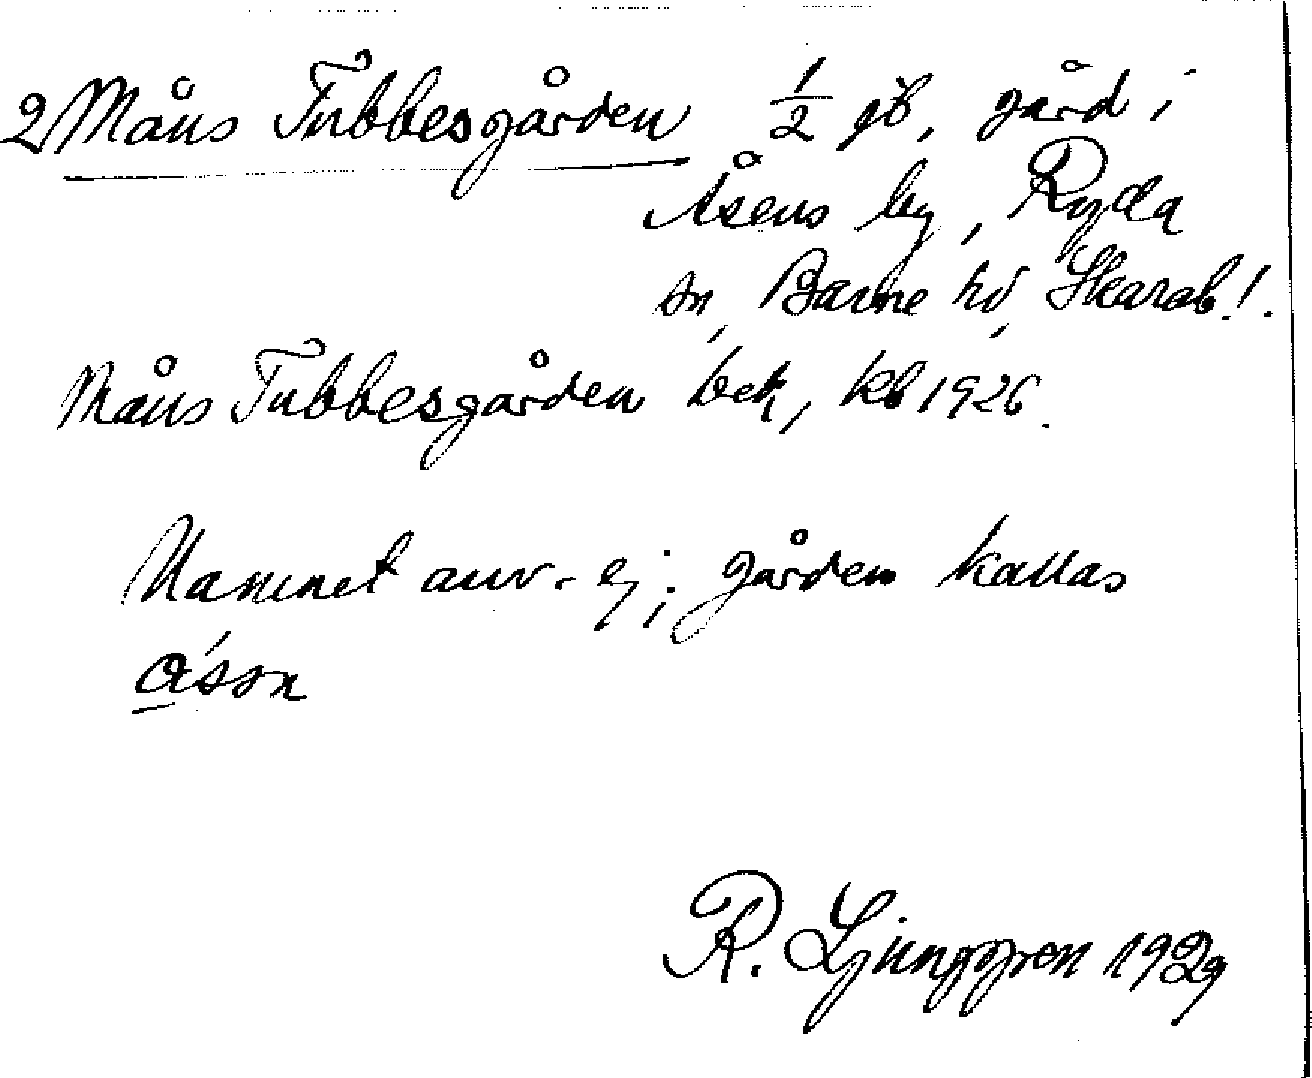 2 Måns Tubbesgården ½ gb, gård i
Åsens by, Ryda
sn, Barne hd, Skarab.l.
Måns Tubbesgården bek, kb 1926.
Namnet anv. ej; gården kallas
åʹsən
R. Ljunggren 1929